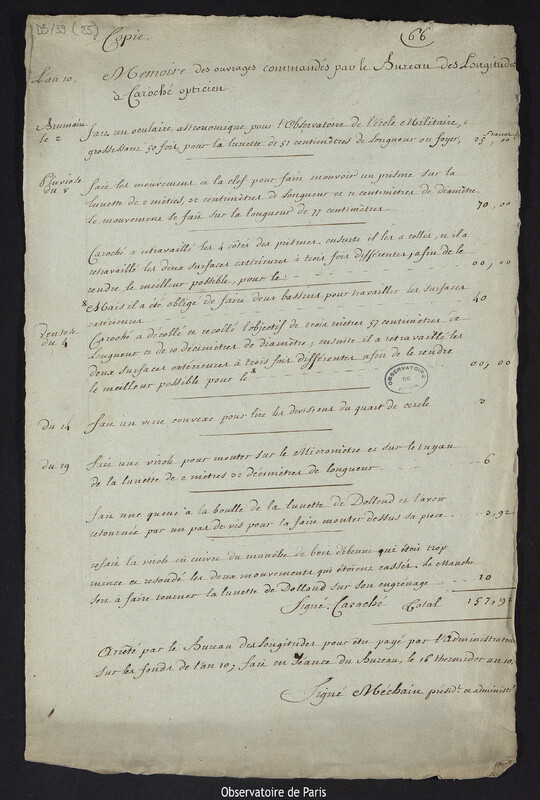 D5/39 (35)
Copie.
66
L'an 10.
Memoire des ouvrages commandés par le Bureau des Longitudes
à Caroché opticien
Brumaire
le 2
fait un oculaire astronomique pour l'Observatoire de l'école Militaire,
grossissant 50 fois pour la lunette de 57 centimètres de longueur ou foyer,
25 francs,00
Pluviose
du 8
fait les mouvemens et la clef pour faire mouvoir un prisme sur la
lunette de 2 mètres, 32 centimètres de longueur et 11 centimètres de diamètre
le mouvement se fait sur la longueur de 77 centimètres
70,00
Caroché a retravaillé les 4 côtés des prismes, ensuite il les a collés, et il a
retravaillé les deux surfaces extérieures à trois fois différentes, afin de le
rendre le meilleur possible, pour le
00,00
* Mais il a été obligé de faire deux bassins pour travailler les surfaces
extérieures
40
Ventose
du 4
Caroché a décollé et recollé l'objectif de trois mètres 57 centimètres de
longueur et de 10 décimètres de diamètre; ensuite il a retravaillé les
deux surfaces extérieures à trois fois différentes afin de le rendre
le meilleur possible pour le *
00,00
OBSERVATOIRE
DE
du 14
fait un verre convexe pour lire les divisions du quart de cercle
3
du 19
fait une virole pour monter sur le Micromètre et sur le tuyau
de la lunette de 2 mètres 32 décimètres de longueur
6
fait une queue à la boulle de la lunette de Dollond et l'avoir
retournée par un pas de vis pour la faire monter dessus sa piece
3,92
refait la virole en cuivre du manche de bois d'ébenne qui étoit trop
mince et resoudé les deux mouvements qui étoient cassés. Le Manche
sert à faire tourner la lunette de Dollond sur son engrenage
10
Signé Caroché Total 157,92
Arrêté par le Bureau des Longitudes pour être payé par l'Administrateur
sur les fonds de l'an 10; fait en séance du Bureau, le 16 thermidor an 10,
Signé Méchain présidt. et administr.
Observatoire de Paris